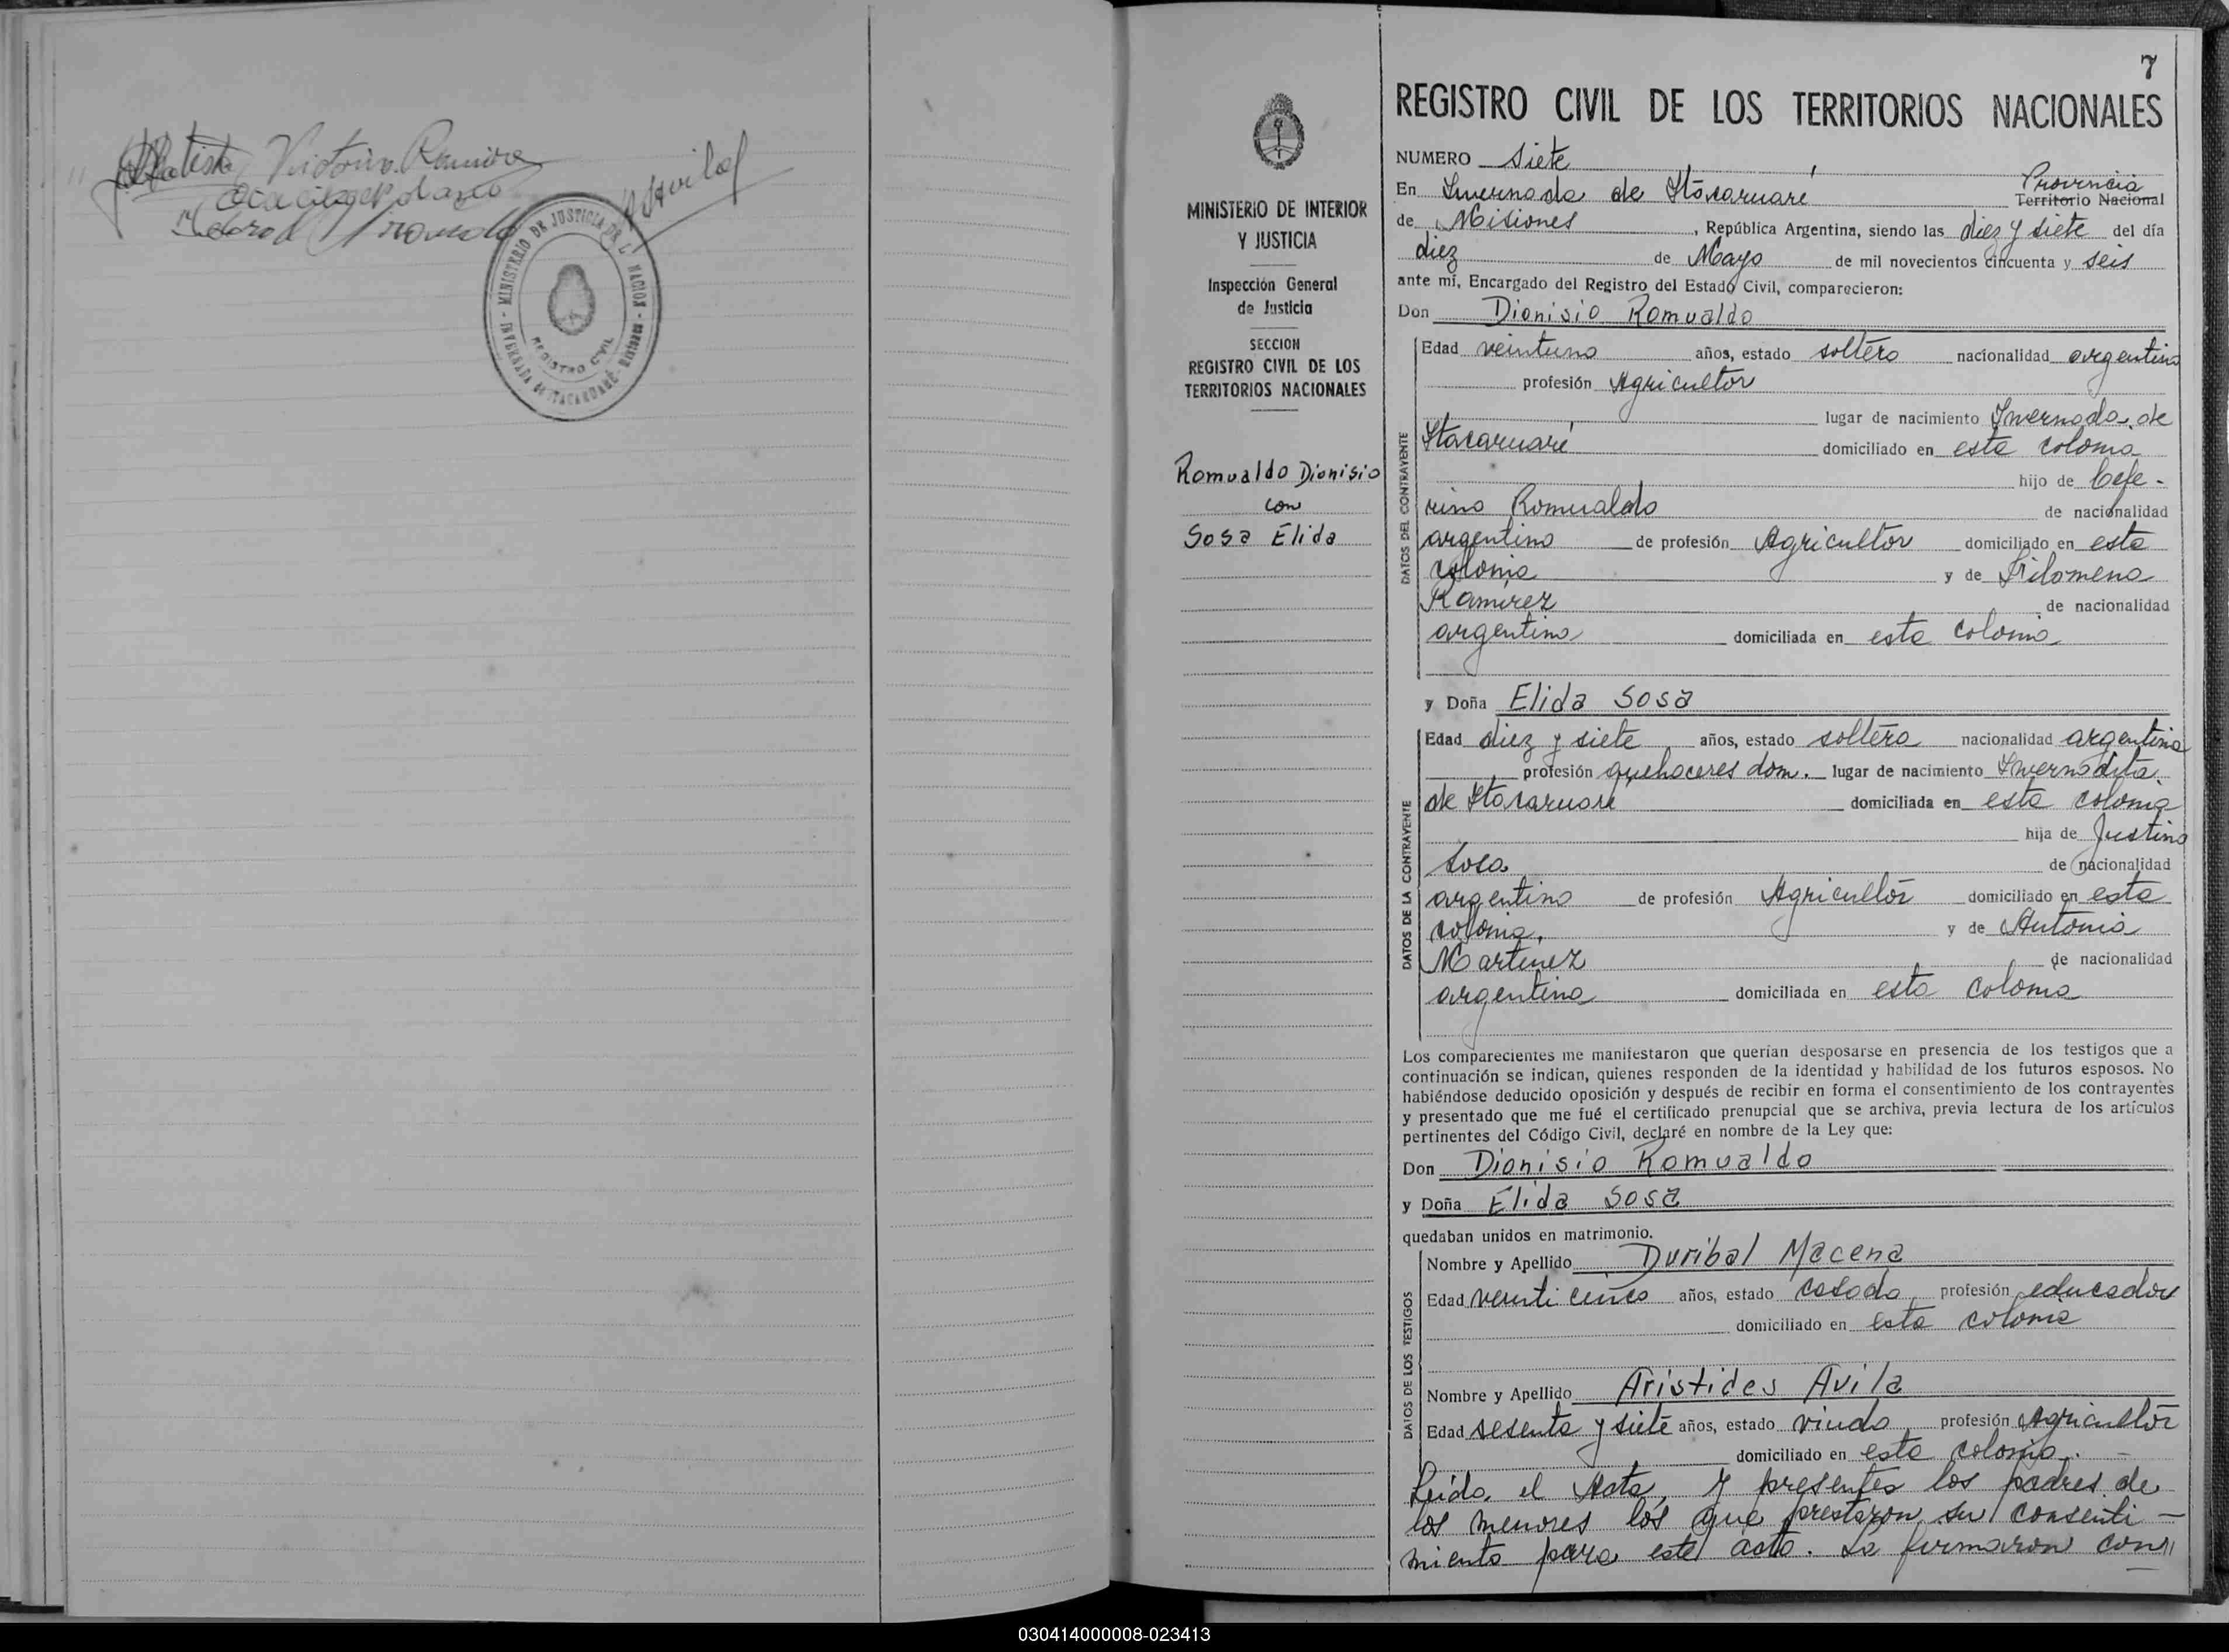 Victorino Ramirez
Avila
MINISTERIO DE JUSTICIA DE LA NACION - INVERNADA DE ITACARUARÉ - Misiones -
REGISTRO CIVIL
MINISTERIO DE INTERIOR
Y JUSTICIA
Inspección General
de Justicia
SECCION
REGISTRO CIVIL DE LOS
TERRITORIOS NACIONALES
Romualdo Dionisio
con
Sosa Elida
7
REGISTRO CIVIL DE LOS TERRITORIOS NACIONALES
NUMERO Siete
En Invernada de Itacaruaré Provincia Territorio Nacional
de Misiones, República Argentina, siendo las diez y siete del día
diez de Mayo de mil novecientos cincuenta y seis
ante mí, Encargado del Registro del Estado Civil, comparecieron:
Don Dionisio Romualdo
DATOS DEL CONTRAYENTE
Edad veintuno años, estado soltero nacionalidad argentino
profesión Agricultor
lugar de nacimiento Invernada de
Itacaruaré domiciliado en esta colonia
hijo de Cefe-
rino Romualdo de nacionalidad
argentino de profesión Agricultor domiciliado en esta
colonia y de Filomena
Ramírez de nacionalidad
argentina domiciliada en esta colonia
y Doña Elida Sosa
DATOS DE LA CONTRAYENTE
Edad diez y siete años, estado soltera nacionalidad argentina
profesión quehaceres dom. lugar de nacimiento Invernadita
de Itacaruaré domiciliada en esta colonia
hija de Justino
Sosa de nacionalidad
argentino de profesión Agricultor domiciliado en esta
colonia. y de Antonia
Martinez de nacionalidad
argentina domiciliada en esta colonia
Los comparecientes me manifestaron que querían desposarse en presencia de los testigos que a
continuación se indican, quienes responden de la identidad y habilidad de los futuros esposos. No
habiéndose deducido oposición y después de recibir en forma el consentimiento de los contrayentes
y presentado que me fué el certificado prenupcial que se archiva, previa lectura de los artículos
pertinentes del Código Civil, declaré en nombre de la Ley que:
Don Dionisio Romualdo
y Doña Elida Sosa
quedaban unidos en matrimonio.
DATOS DE LOS TESTIGOS
Nombre y Apellido Duribal Macena
Edad veinti cinco años, estado casado profesión educador
domiciliado en esta colonia
Nombre y Apellido Aristides Avila
Edad sesenta y siete años, estado viudo profesión Agricultor
domiciliado en esta colonia.
Leida el Acta, y presentes los padres de
los menores los que prestaron su consenti-
miento para este acto. La firmaron con//
030414000008-023413